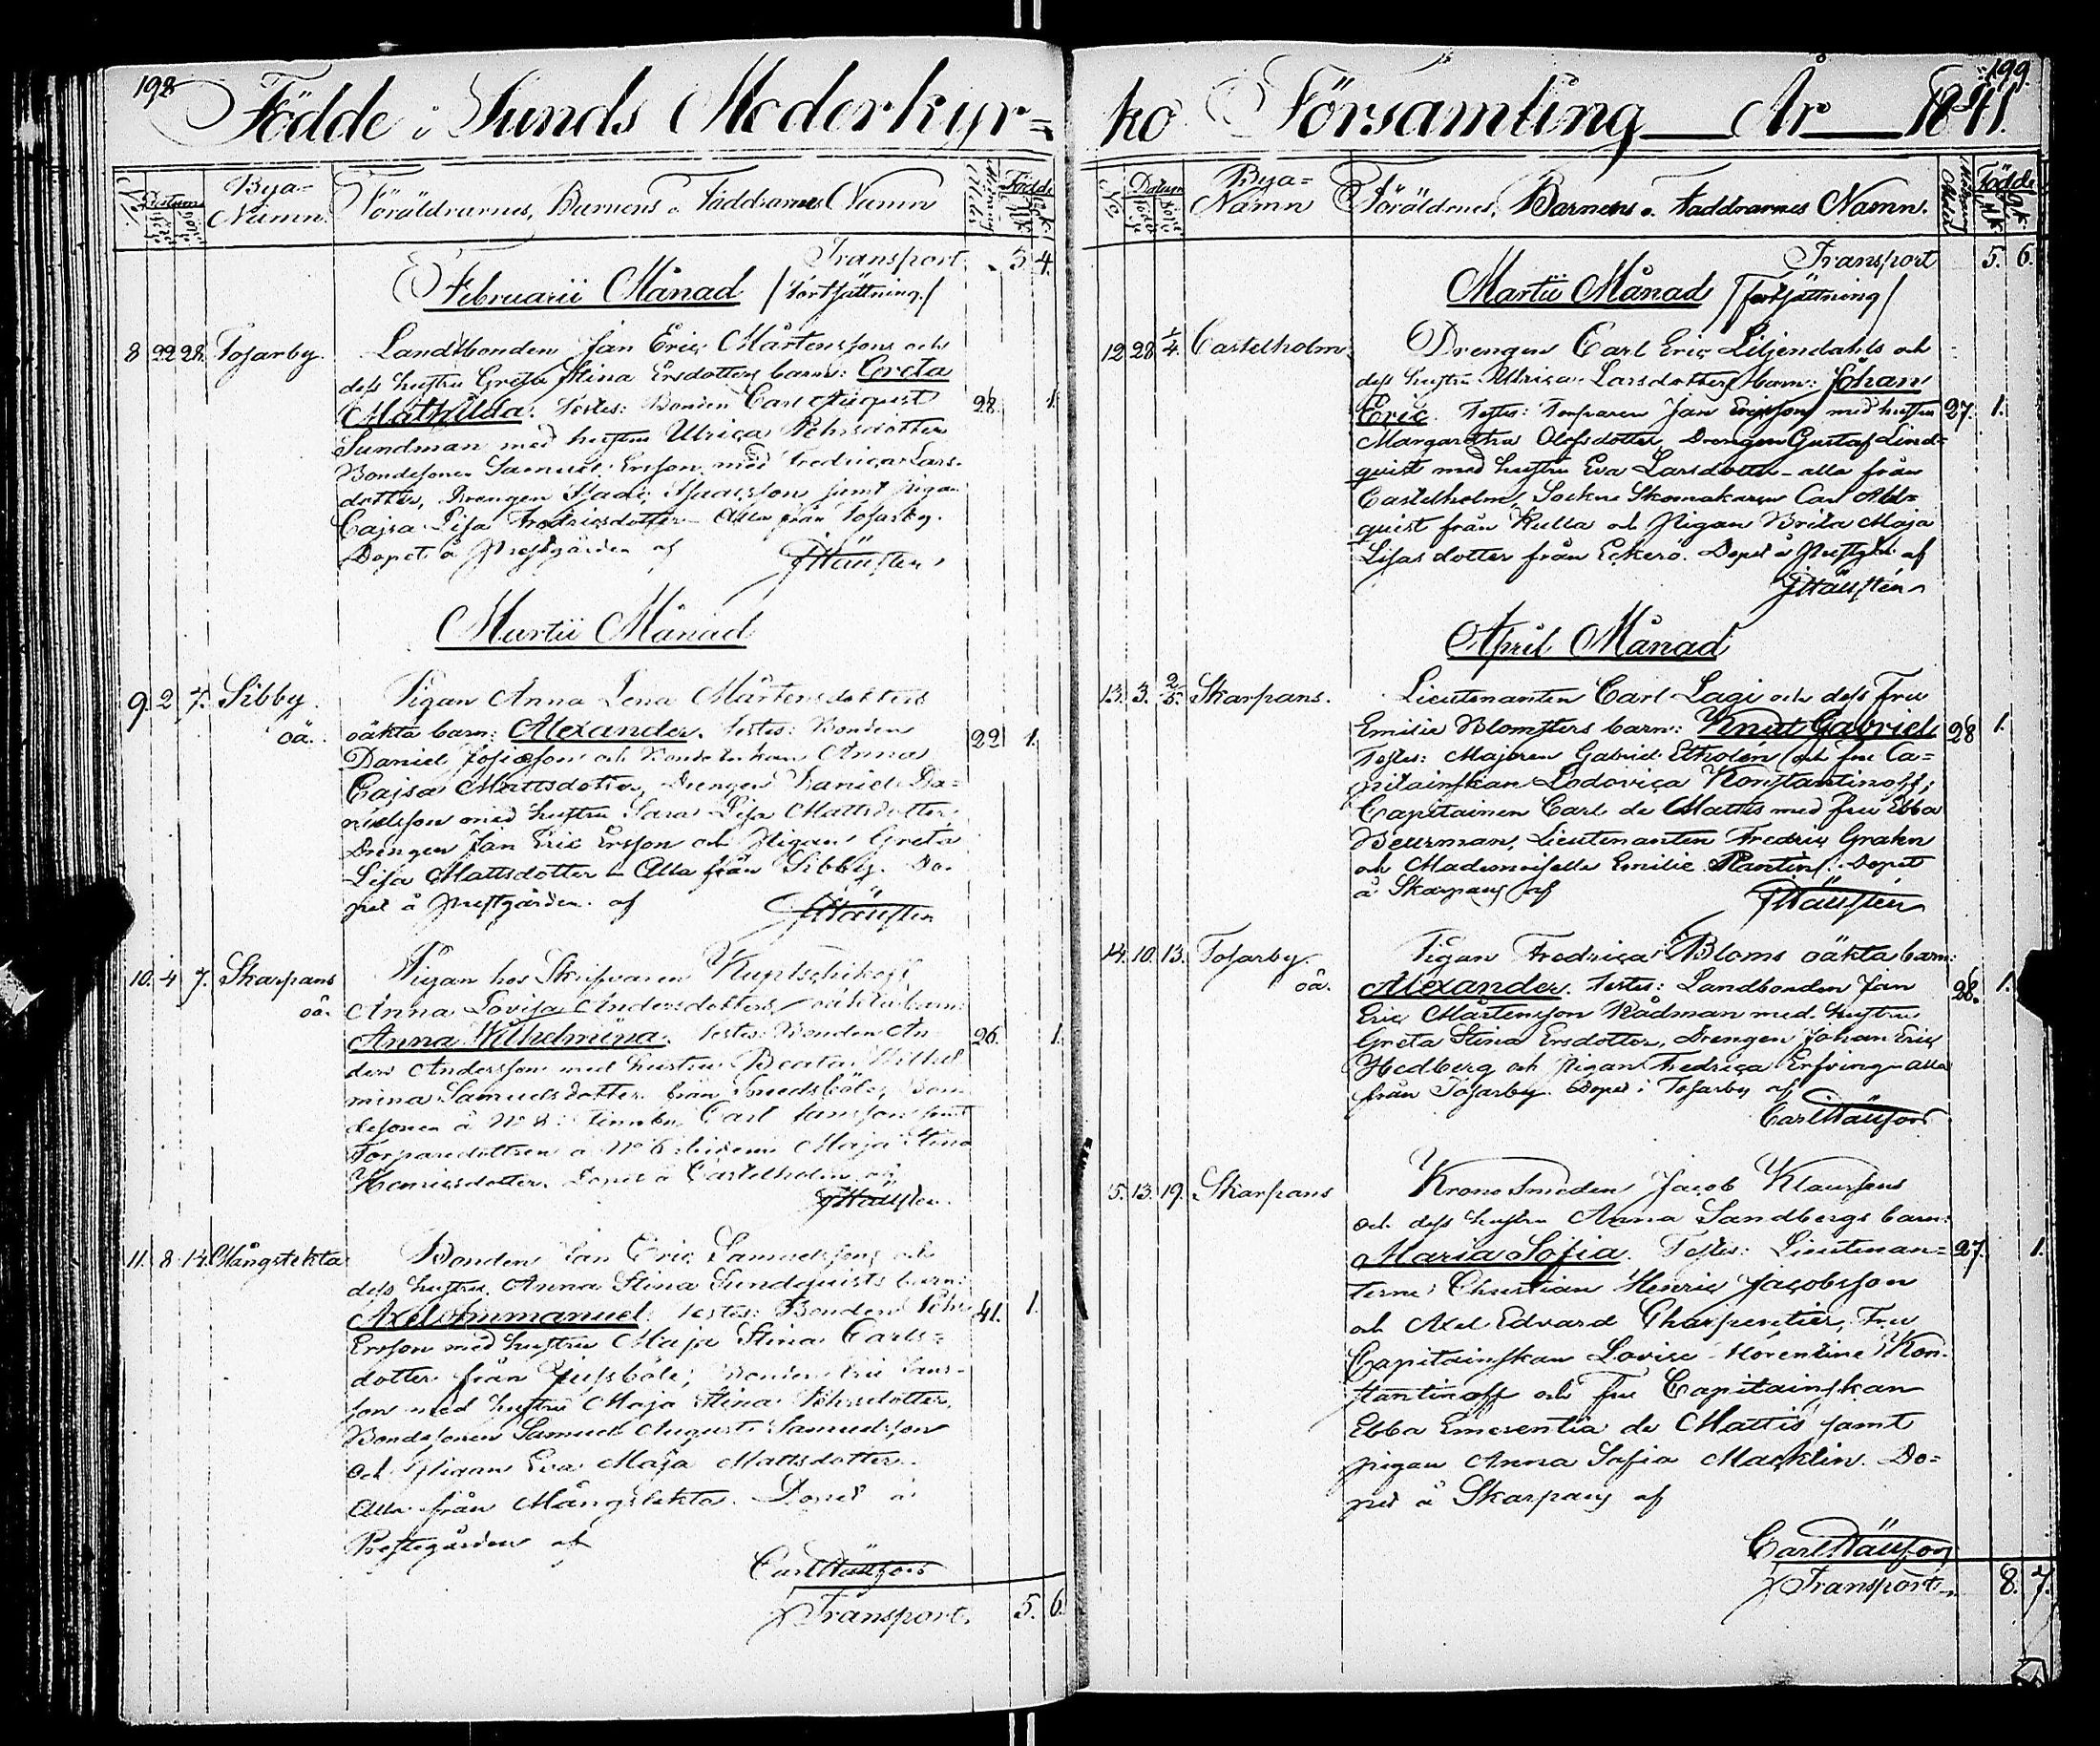 198
Födde i Sunds Moderkyr=
No Datum Bya= Namn. Föräldrarnes, Barnens o. Faddrarnes Namn Modrens Ålder Födde Mk. Qk.
Transport. 3. 4.
Februarii Månad /Fortsättning./
8 22 28. Tosarby. Landtbonden Jan Eric Mårtenssons och
dess hustru Greta Stina Ersdotters barn: Greta
Mathilda. Testes: Bonden Carl 28. 1.
Sundman med hustru Ulrica Pehrsdotter
Bondesonen Samuel Ersson med Fredrica Lars-
dotter, Drengen Isaac Isacsson samt Pigan
Cajsa Lisa Fredricsdotter - Alla från Tosarby.
Döpet å Prestgården af
Martii Månad
9. 2 7. Sibby. Pigan Anna Lena Mårtensdotters
oä. oäkta barn: Alexander. Testes: Bonden 22 1.
Daniel och Anna
Cajsa Mattsdotter, Drengen Daniel Da=
nielsson med hustru Sara Lisa Mattsdotter,
Drengen Jan Eric Ersson och Pigan Greta
Lisa Mattsdotter - Alla från Sibby. Dö-
pet å Prestgården af
10. 4 7. Skarpans Pigan hos Skrifvaren
oä. Anna Lovisa Andersdotters oäkta barn:
Anna Wilhelmina. Testes: Bonden An- 26. 1.
ders Andersson med hustru Beata Wilhel
mina Samuelsdotter från Smedsböle, Bon-
desonen å No Carl Jansson samt
Torparedottren å No 6 Maja Stina
Henricsdotter. Döpet å Castelholm af
11. 8 14. Mångstekta Bonden Jan Eric Samuelssons och
dess hustru Anna Stina Sundquists barn:
Axel Emmanuel. Testes: Bonden Pehr 41. 1.
Ersson med hustru Maja Stina Carls=
dotter från Bonden Eric Jans-
son med hustru Maja Stina Pehrsdotter,
Bondesonen Samuel August Samuelsson
och Pigan Eva Maja Mattsdotter.
Alla från Mångstekta. Döpet å
Prestegården af
Transport. 5. 6.
199
ko Församling År 1841.
No Datum Bya= Namn Föräldrnes, Barnens o. Faddrarnes Namn. Modrens Ålder Födde Mk. Qk.
Transport 5. 6.
Martii Månad /fortsättning/
12. 28 1/4. Castelholm. Drengen Carl Eric Liljendahls och
dess hustru Ulrica Larsdotters barn: Johan
Eric. Testes: Torparen Jan Ericsson med hustru 27. 1.
Margaretha Olofsdotter, Drengen Gustaf Lind=
quist med hustru Eva Larsdotter - alla från
Castelholm, Sockne Skomakaren Carl Ahl=
quist från Kulla och Pigan Brita Maja
Lisasdotter från Eckerö. Döpet å Prestgån af
April Månad
13. 3. 2/5. Skarpans. Lieutenanten Carl Lagi och dess Fru
Emilie Blomsters barn: Knut Gabriel 28 1.
Testes: Majoren Gabriel Etholén och fru Ca=
pitainskan Lodovica Konstantinoff;
Capitainen Carl de Mattis med fru Ebba
Beurman, Lieutenanten Fredric Grahn
och Mademoiselle Emilie Plantin. Döpet
å Skarpans af
14. 10. 13. Tosarby. Pigan Fredrica Bloms oäkta barn:
oä. Alexander. Testes: Landbonden Jan 28. 1.
Eric Mårtensson Rådman med hustru
Greta Stina Ersdotter, Drengen Johan Eric
Hedberg och Pigan Fredrica Erfving - alla
från Tosarby. Döpet i Tosarby af
15. 13. 19. Skarpans Krono Smeden Jacob Klaussens
och dess hustru Anna Sandbergs barn:
Maria Sofia. Testes: Lieutenan= 27. 1.
terne Christian Henric Jacobsson
och Axel Edvard Charpentier, Fru
Capitainskan Lovise Florentine Kon-
stantinoff och Fru Capitainskan
Ebba Emerentia de Mattis samt
pigan Anna Sofia Macklin. Dö=
pet å Skarpans af
Transport. 8. 7.